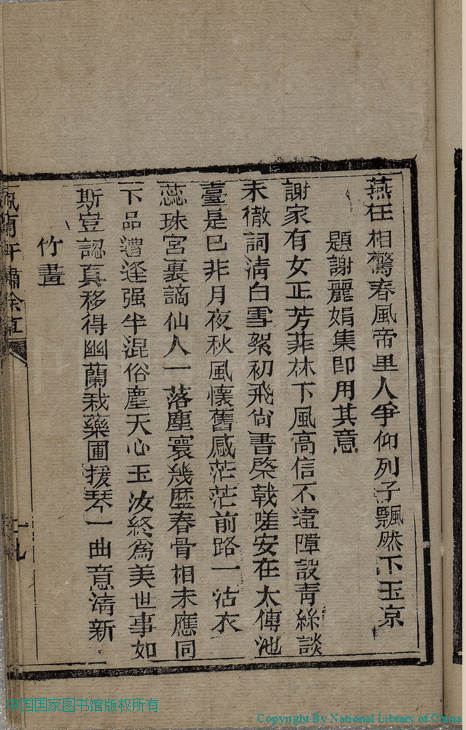 燕任相驚春風帝里人爭仰列子飄然下玉京
題謝麗娟集即用其意
謝家有女正芳菲林下風高信不違障設青絲談
未徹詞清白雪絮初飛尙書棨戟嗟安在太傅池
臺是已非月夜秋風懷舊感茫茫前路一沾衣
蕊珠宮裏謫仙人一落塵寰幾歷春骨相未應同
下品遭逢强半混俗塵天心玉汝終爲美世事如
斯豈認真移得幽蘭栽藥圃援琴一曲意清新
竹畫
佩蘭軒繡餘草
十九
中国国家图书馆版权所有
Copyright By National Library of China